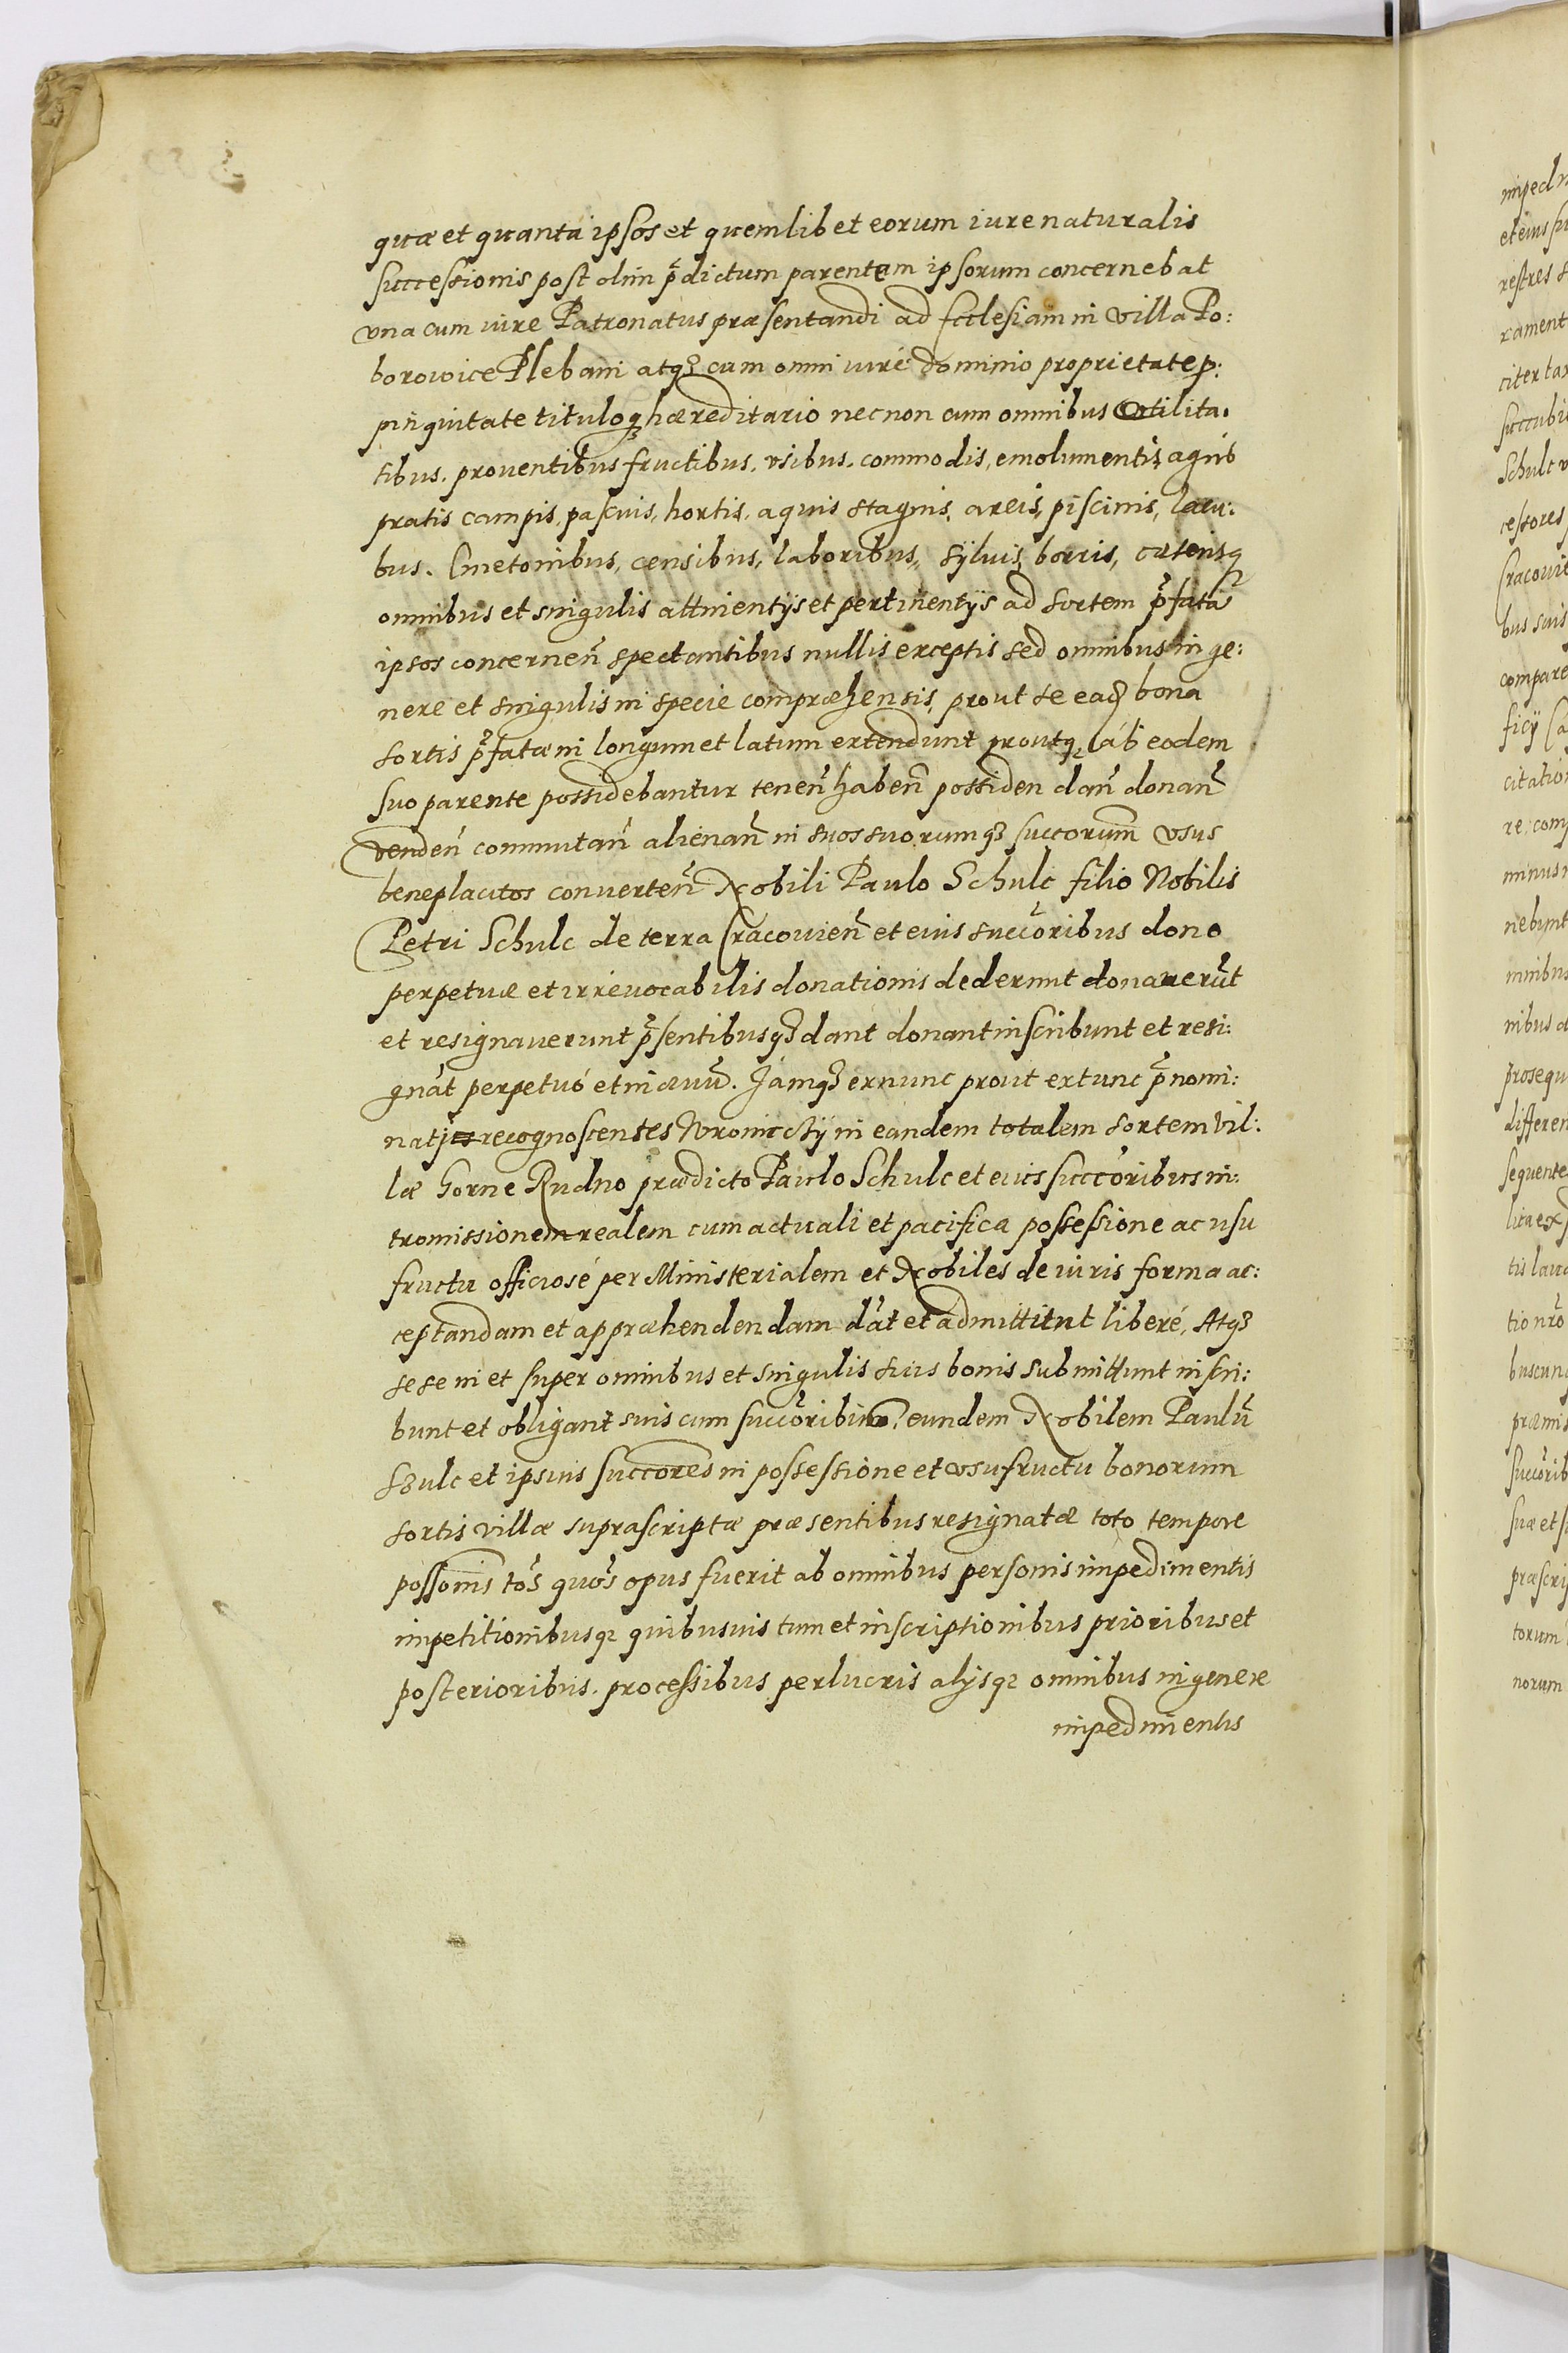 quæ et quanta ipsos et quemlibet eorum iure naturalis
successionis post olim p̃dictum parentem ipsorum concernebat
vna cum iure Patronatus præsentandi ad Ecclesiam in villa Po:
borowice Plebani atq3 cum omni iure dominio proprietate p:
pinquitate tituloq3 hæreditario necnon cum omnibus vtilita.
tibus. prouentibus fructibus, vsibus. commodis, emolumentis, agris
pratis campis, pascuis, hortis, aquis stagnis, areis, piscinis, lacu:
bus. Cmetonibus, censibus, laboribus, sÿluis, borris, cæterisq3
omnibus et singulis attinentÿs et pertinentÿs ad sortem p̃fatã
ipsos concerneñ spectantibus nullis exceptis sed omnibus in ge:
nere et singulis in specie compræhensis, prout se eadẽ bona
sortis p̃fatæ in longum et latum extendunt proutq3 ab eodem
suo parente possidebantur teneñ habeñ possiden dañ donañ
vendeñ commutañ alienañ in suos suorumq3 succorum vsus
beneplacitos converteñ Nobili Paulo Schulc filio Nobilis
Petri Schulc de terra Cracouieñ et eius succõribus dono
perpetuæ et irreuocabilis donationis dederunt donauerũt
et resignauerunt p̃sentibusq3 dant donant inscribunt et resi:
gnãt perpetuó et in æuũ. Jamq3 exnunc prout extunc p̃nomi:
nati recognoscentes Wronicckÿ in eandem totalem sortem vil:
læ Gorne Rudno prædicto Paulo Schulc et eius succõribus in:
tromissionem realem cum actuali et pacifica possessione ac usu
fructu officiosé per Ministerialem et Nobiles de iuris forma ac:
ceptandam et appræhendendam dãt et admittunt liberé, Atq3
sese in et super omnibus et singulis suis bonis submittunt inscri:
bunt et obligant suis cum succõribus, eundem Nobilem Paulũ
Szulc et ipsius succores in possessione et vsufructu bonorum
sortis villæ suprascriptæ præsentibus resignatæ toto tempore
possonis tõs quõs opus fuerit ab omnibus personis impedimentis
impetitionibusq3 quibusuis tum et inscriptionibus prioribus et
posterioribus. processibus perlucris alÿsq3 omnibus in genere
impedimentis